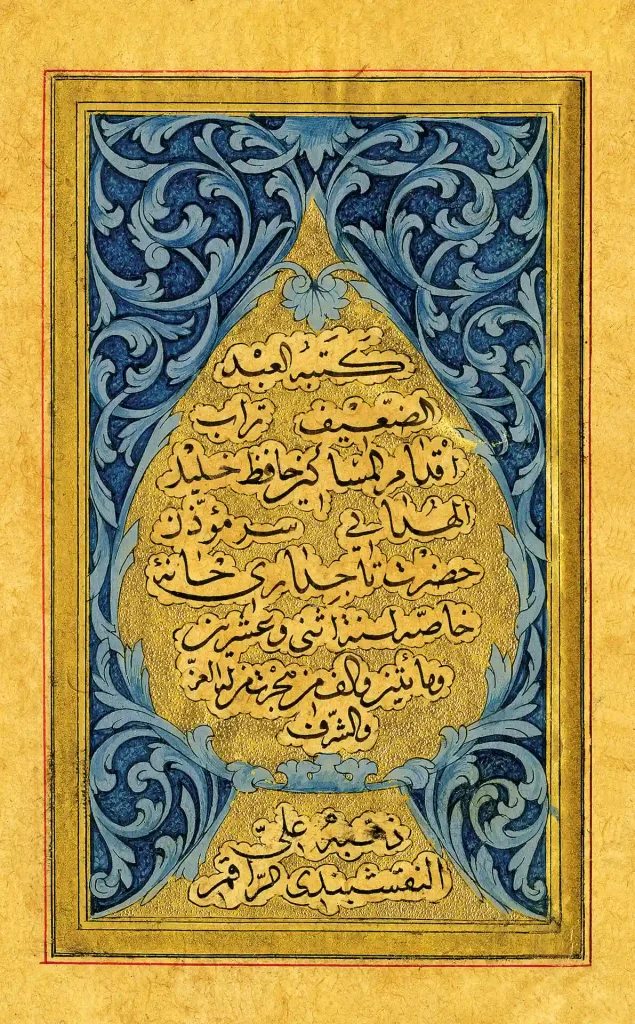 كتبه العبد
الضعيف تراب
اقدام المساكين حافظ
الهدائي سر مؤذن
حضرت تاجداري
خاصه لسنة اثنى وعشرين
ومائتين والف من هجرة من له العز
والشرف
ذهبه علي
النقشبندى